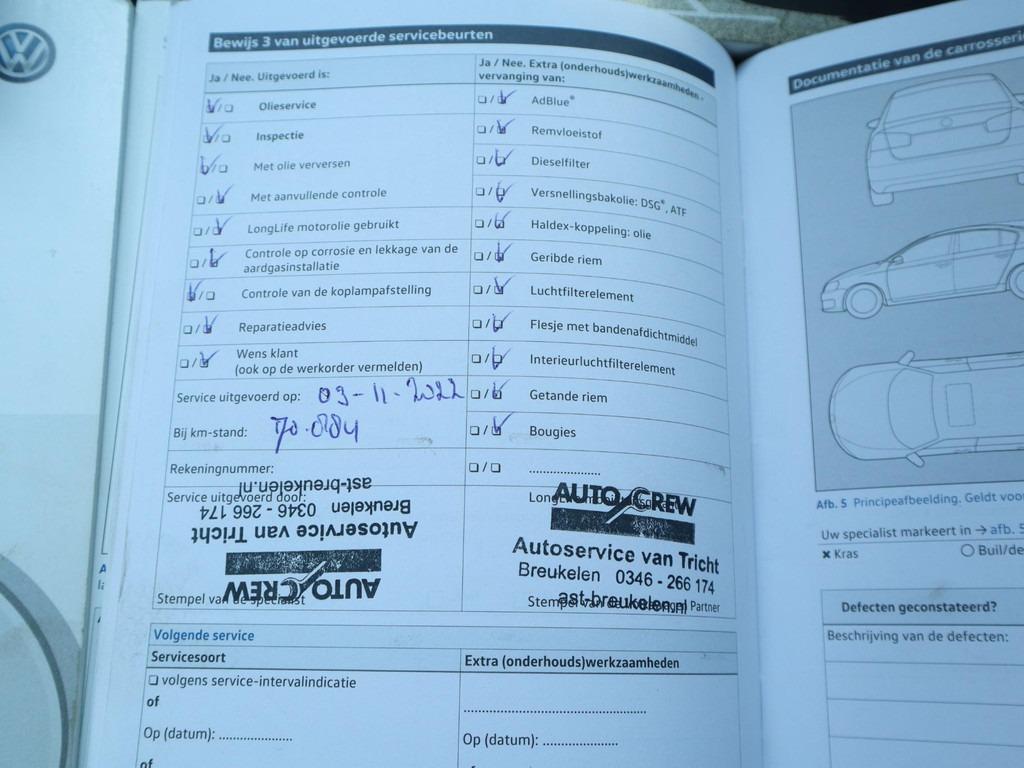 Bewijs 3 van uitgevoerde servicebeurten
Ja / Nee. Uitgevoerd is:
Olieservice
Inspectie
Met olie verversen
Met aanvullende controle
LongLife motorolie gebruikt
Controle op corrosie en lekkage van de
aardgasinstallatie
Controle van de koplampafstelling
Reparatieadvies
Wens klant
(ook op de werkorder vermelden)
Service uitgevoerd op: 03-11-2022
Bij km-stand: 70.884
Rekeningnummer:
Service uitgevoerd door:
AUTO CREW
Autoservice van Tricht
Breukelen 0346 - 266 174
ast-breukelen.nl
Stempel van de specialist
Ja / Nee. Extra (onderhouds)werkzaamheden -
vervanging van:
AdBlue®
Remvloeistof
Dieselfilter
Versnellingsbakolie: DSG®, ATF
Haldex-koppeling: olie
Geribde riem
Luchtfilterelement
Flesje met bandenafdichtmiddel
Interieurluchtfilterelement
Getande riem
Bougies
.....................
AUTO CREW
Autoservice van Tricht
Breukelen 0346 - 266 174
ast-breukelen.nl
Stempel van de Partner
Volgende service
Servicesoort
volgens service-intervalindicatie
of
Op (datum): .....................
of
Extra (onderhouds)werkzaamheden
.....................
Op (datum): .....................
Documentatie van de
Afb. 5 Principeafbeelding. Geldt
Uw specialist markeert in → afb. 5
× Kras
Defecten geconstateerd?
Beschrijving van de defecten:
VW